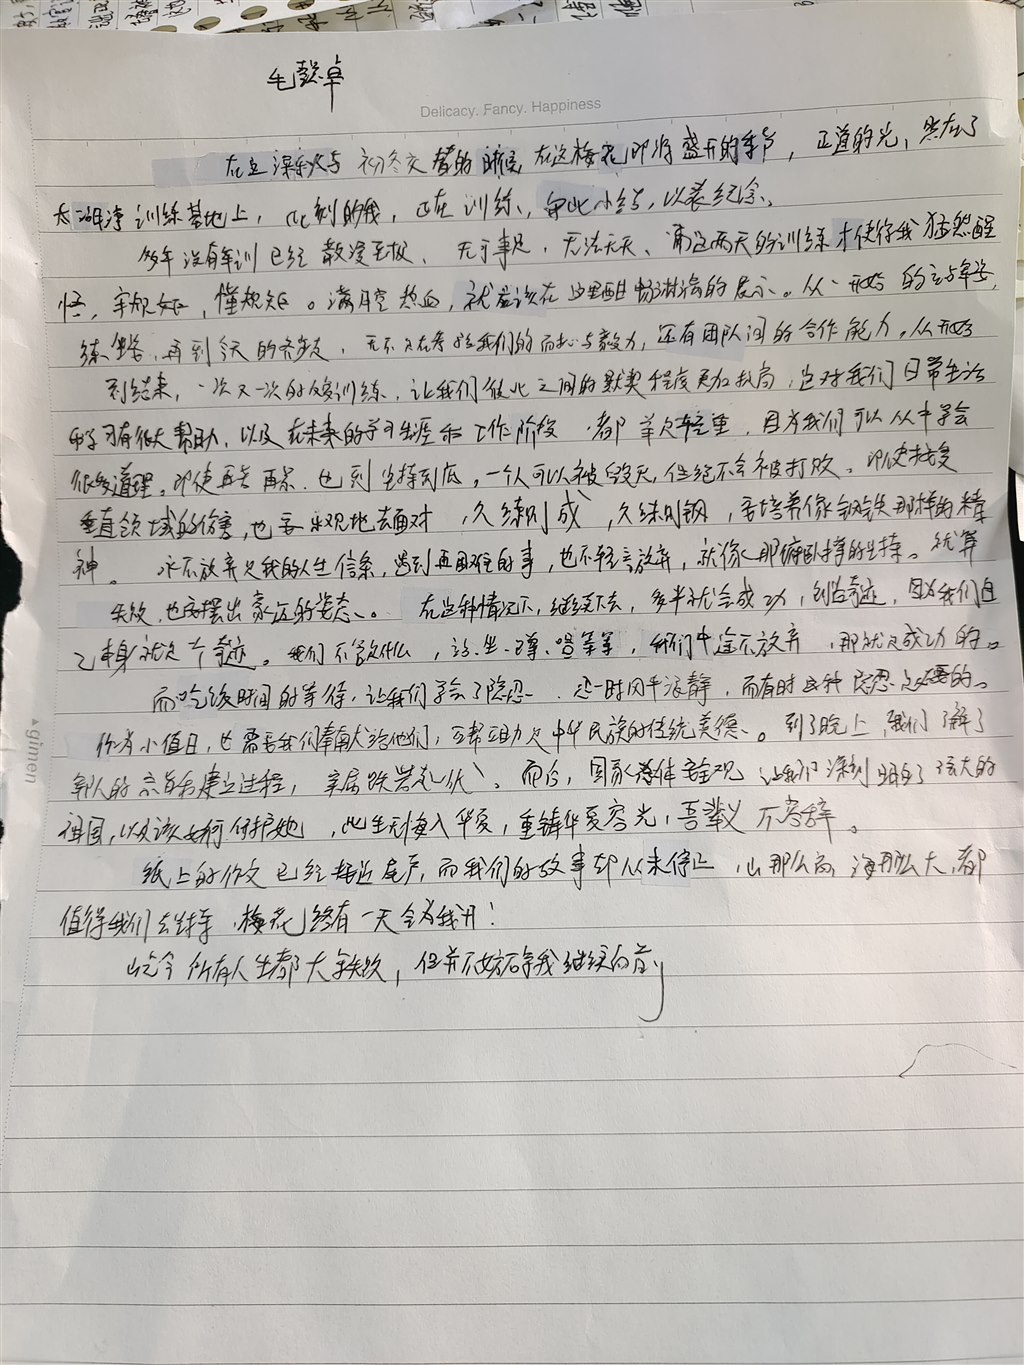 毛懿卓
Delicacy. Fancy. Happiness
在这深秋与初冬交替的时候，在这梅花即将盛开的季节，正道的光，照在了
太湖净训练基地上，此刻的我，正在训练，写此小结，以表纪念。
多年没有军训已经散漫至极、无所事事、无法无天、而这两天的训练才使得我猛然醒
悟，守规矩，懂规矩。满腔热血，就应该在这里酣畅淋漓的展示。从一开始的站军姿，
练坐，再到今天的齐步走，无不只在考验我们的耐心与毅力，还有团队间的合作能力。从开始
到结束，一次又一次的反复训练，让我们彼此之间的默契程度更加拔高，当对我们日常生活
和学习有很大帮助，以及在未来的学习生涯和工作阶段，都举足轻重，因为我们可以从中学会
很多道理。即使再苦再累，也到坚持到底，一个人可以被毁灭，但绝不会被打败。即使接受
垂直领域的伤害，也要乐观地去面对，久练则成，久练则钢，要培养像钢铁那样的精
神。永不放弃是我的人生信条，遇到再困难的事，也不轻言放弃，就像那俯卧撑的坚持。就算
失败，也应摆出豪迈的姿态。在这种情况下，继续下去，多半就会成功，创造奇迹，因为我们自
己本身就是个奇迹。我们不管做什么，站、坐、蹲、唱等等，我们中途不放弃，那就是成功的。
而吃饭时间的等待，让我们学会了隐忍，忍一时风平浪静，而有时这种隐忍是必要的。
作为小值日，也需要我们奉献给他们，互帮互助是中华民族的传统美德。到了晚上，我们了解了
军人的建立过程，而后，国家整体安全观让我们深刻明白了强大的
祖国，以及该如何保护她，此生无悔入华夏，重铸华夏容光，吾辈义不容辞。
纸上的作文已经接近尾声，而我们的故事却从未停止，山那么高，海那么大，都
值得我们去坚持，梅花终有一天会为我开！
所有人生都大失败，但并不妨碍我继续向前
gimen